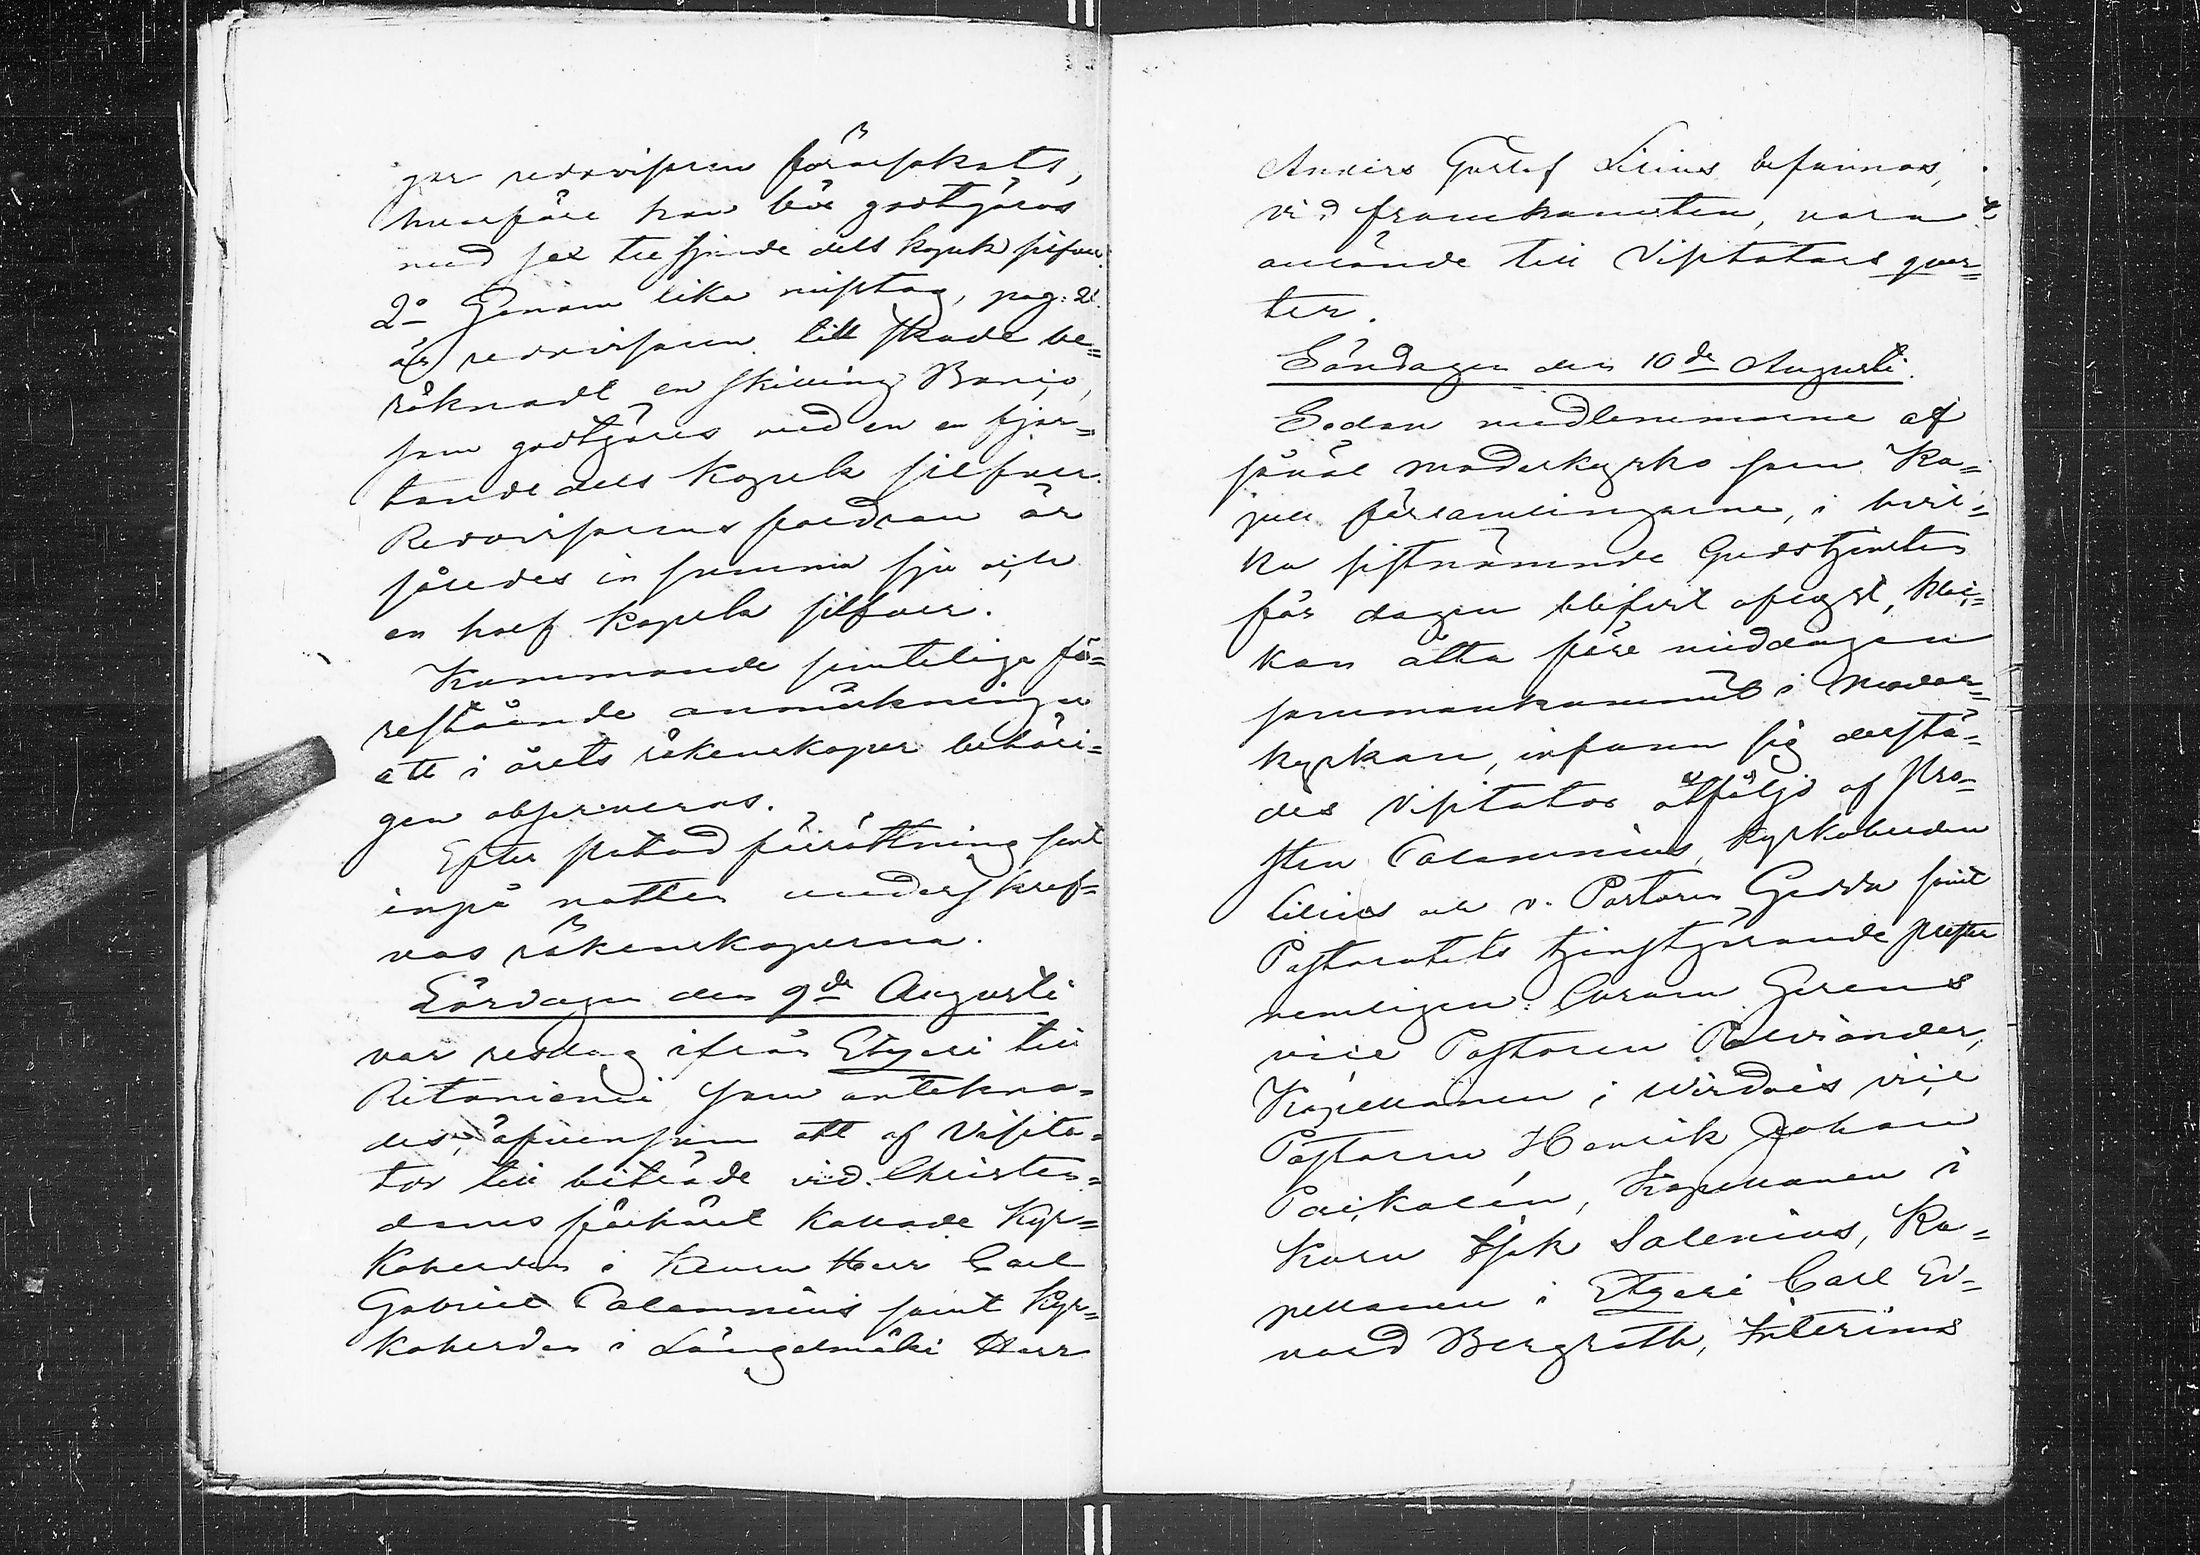 gar redovisaren förorsakats,
hvarföre han bör godtgöras
med sex tre fjerde dels kopek silfver.
2o Genom lika misstag, pag: 21.
är redovisaren till skade be=
räknadt en skilling Banco,
som godtgöres med en en fjer=
tondedels kopek silfver.
Redovisarens fordran är
således in summa sju och
en half kopek silfver.
Kommande samtelige fö=
restående anmärkningar
att i årets räkenskaper behöri=
gen observeras.
Efter slutad förrättning sent
inpå natten underskref=
vos räkenskaperna.
Lördagen den 9de Augusti
var resdag ifrån Etseri till
Ritoniemi som antekna=
des, äfvensom att af Visita=
tor till biträde vid Christen=
doms förhöret kallade Kyr=
koherden i Keuru Herr Carl
Gabriel Calamnius samt Kyr=
koherden i Längelmäki Herr
Anders Gustaf Lilius befunnos,
vid framkomsten, vara
anlände till Visitators qvar=
ter.
Söndagen den 10de Augusti.
Sedan medlemmarne af
såväl moderkyrko som Ka=
pell församlingarne, i hvil=
ka sistnämnde Gudstjensten
för dagen blifvit aflyst, kloc=
kan åtta före middagen
sammankommit i Moder=
kyrkan, infann sig derstä=
des Visitator åtföljd af Pro=
sten Calamnius, Kyrkoherden
Lilius och v. Pastorn Gedda samt
Pastoratets tjenstgörande prester
nemligen: Curam Gerens
vice Pastoren Polviander,
Kapellanen i Wirdois vice
Pastoren Henrik Johan
Paikalén, Kapellanen i
Kuru Isak Salenius, Ka=
pellanen i Etseri Carl Ed=
vard Bergroth, Interims